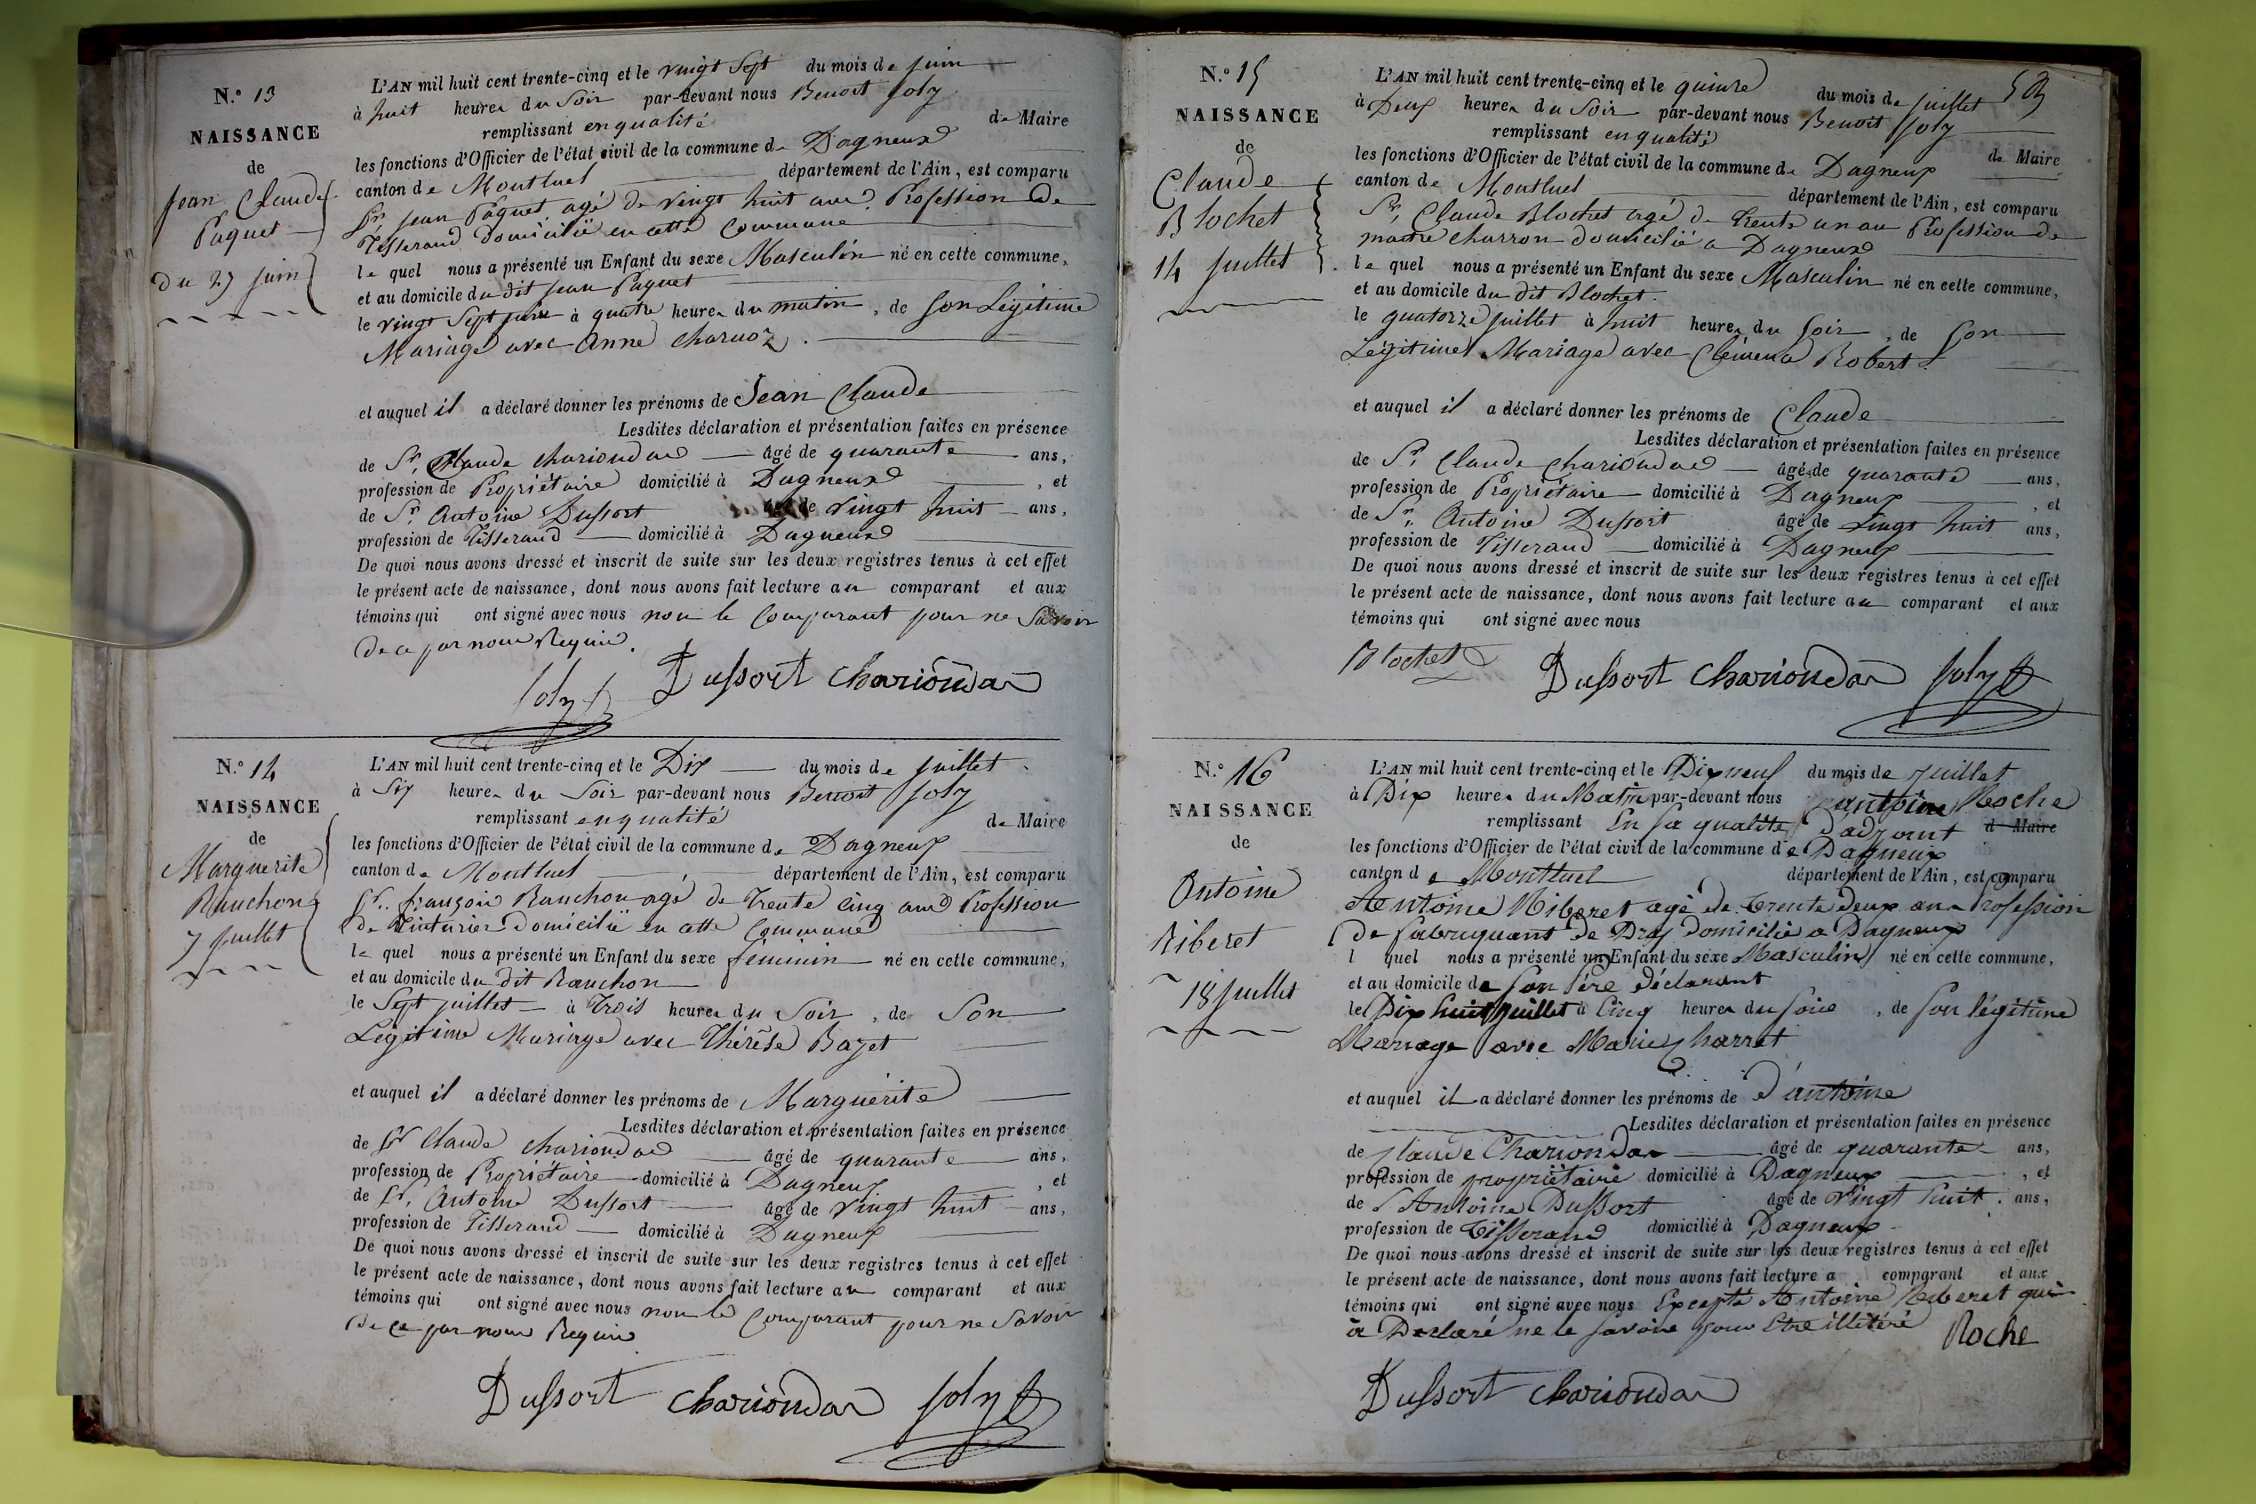 N.o 13
NAISSANCE
de
Jean Claude
Paquet
du 27 juin
L'AN mil huit cent trente-cinq et le vingt Sept du mois de juin
à huit heures du Soir par-devant nous Benoit Joly
remplissant en qualité de Maire
les fonctions d'Officier de l'état civil de la commune de Dagneux
canton de Montluel département de l'Ain, est comparu
Sr. Jean Paquet agé de vingt huit ans Profession de
Tisserand domicilié en cette Commune
le quel nous a présenté un Enfant du sexe Masculin né en cette commune,
et au domicile du dit Jean Paquet
le vingt Sept juin à quatre heures du matin, de Son Légitime
Mariage avec Anne Charvoz.
et auquel il a déclaré donner les prénoms de Jean Claude
Lesdites déclaration et présentation faites en présence
de Sr. Claude Chariondas âgé de quarante ans,
profession de Propriétaire domicilié à Dagneux, et
de Sr. Antoine Dussort âgé de vingt huit ans,
profession de Tisserand domicilié à Dagneux
De quoi nous avons dressé et inscrit de suite sur les deux registres tenus à cet effet
le présent acte de naissance, dont nous avons fait lecture au comparant et aux
témoins qui ont signé avec nous non le Comparant pour ne Savoir
de ce par nous Requis.
Joly Dussort Chariondas
N.o 14
NAISSANCE
de
Marguerite
Ranchon
7 Juillet
L'AN mil huit cent trente-cinq et le Dix du mois de Juillet
à Six heures du Soir par-devant nous Benoit Joly
remplissant en qualité de Maire
les fonctions d'Officier de l'état civil de la commune de Dagneux
canton de Montluel département de l'Ain, est comparu
Sr. françois Ranchon agé de Trente cinq ans Profession
de Teinturier domicilié en cette Commune
le quel nous a présenté un Enfant du sexe féminin né en cette commune,
et au domicile du dit Ranchon
le Sept juillet à Trois heures du Soir, de Son
Légitime Mariage avec Thérèse Bazet
et auquel il a déclaré donner les prénoms de Marguerite
Lesdites déclaration et présentation faites en présence
de Sr Claude Chariondas âgé de quarante ans,
profession de Propriétaire domicilié à Dagneux, et
de Sr. Antoine Dussort âgé de vingt huit ans,
profession de Tisserand domicilié à Dagneux
De quoi nous avons dressé et inscrit de suite sur les deux registres tenus à cet effet
le présent acte de naissance, dont nous avons fait lecture au comparant et aux
témoins qui ont signé avec nous non le Comparant pour ne Savoir
de ce par nous Requis
Dussort Chariondas Joly
N.o 15
NAISSANCE
de
Claude
Blochet
14 juillet
L'AN mil huit cent trente-cinq et le quinze du mois de juillet
à Deux heures du Soir par-devant nous Benoit Joly
remplissant en qualité de Maire
les fonctions d'Officier de l'état civil de la commune de Dagneux
canton de Montluel département de l'Ain, est comparu
Sr. Claude Blochet agé de trente un an Profession de
maitre Charron domicilié a Dagneux
le quel nous a présenté un Enfant du sexe Masculin né en cette commune,
et au domicile du dit Blochet.
le quatorze juillet à huit heures du Soir, de Son
Légitime Mariage avec Clémence Robert
et auquel il a déclaré donner les prénoms de Claude
Lesdites déclaration et présentation faites en présence
de Sr. Claude Chariondas âgé de quarante ans,
profession de Propriétaire domicilié à Dagneux, et
de Sr. Antoine Dussort âgé de vingt huit ans,
profession de Tisserand domicilié à Dagneux
De quoi nous avons dressé et inscrit de suite sur les deux registres tenus à cet effet
le présent acte de naissance, dont nous avons fait lecture au comparant et aux
témoins qui ont signé avec nous
Blochet Dussort Chariondas Joly
N.o 16
NAISSANCE
de
Antoine
Riberet
18 juillet
L'AN mil huit cent trente-cinq et le Dix neuf du mois de juillet
à Dix heures du Matin par-devant nous antoine Roche
remplissant En Sa qualité D'adjoint d Maire
les fonctions d'Officier de l'état civil de la commune de Dagneux
canton de Montluel département de l'Ain, est comparu
Antoine Riberet agé de trente deux ans Profession
De fabriquant de Drap domicilié a Dagneux
l quel nous a présenté un Enfant du sexe Masculin né en cette commune,
et au domicile de Son Père déclarant
le Dix huit juillet à Cinq heures du Soire, de Son légitime
Mariage avec Marie Charret
et auquel il a déclaré donner les prénoms de d'antoine
Lesdites déclaration et présentation faites en présence
de Claude Chariondas âgé de quarante ans,
profession de propriétaire domicilié à Dagneux, et
de Antoine Dussort âgé de vingt huit ans,
profession de Tisserand domicilié à Dagneux
De quoi nous avons dressé et inscrit de suite sur les deux registres tenus à cet effet
le présent acte de naissance, dont nous avons fait lecture a comparant et aux
témoins qui ont signé avec nous Excepté Antoine Riberet qui
a Declaré ne le Savoire pour Etre illétéré Roche
Dussort Chariondas